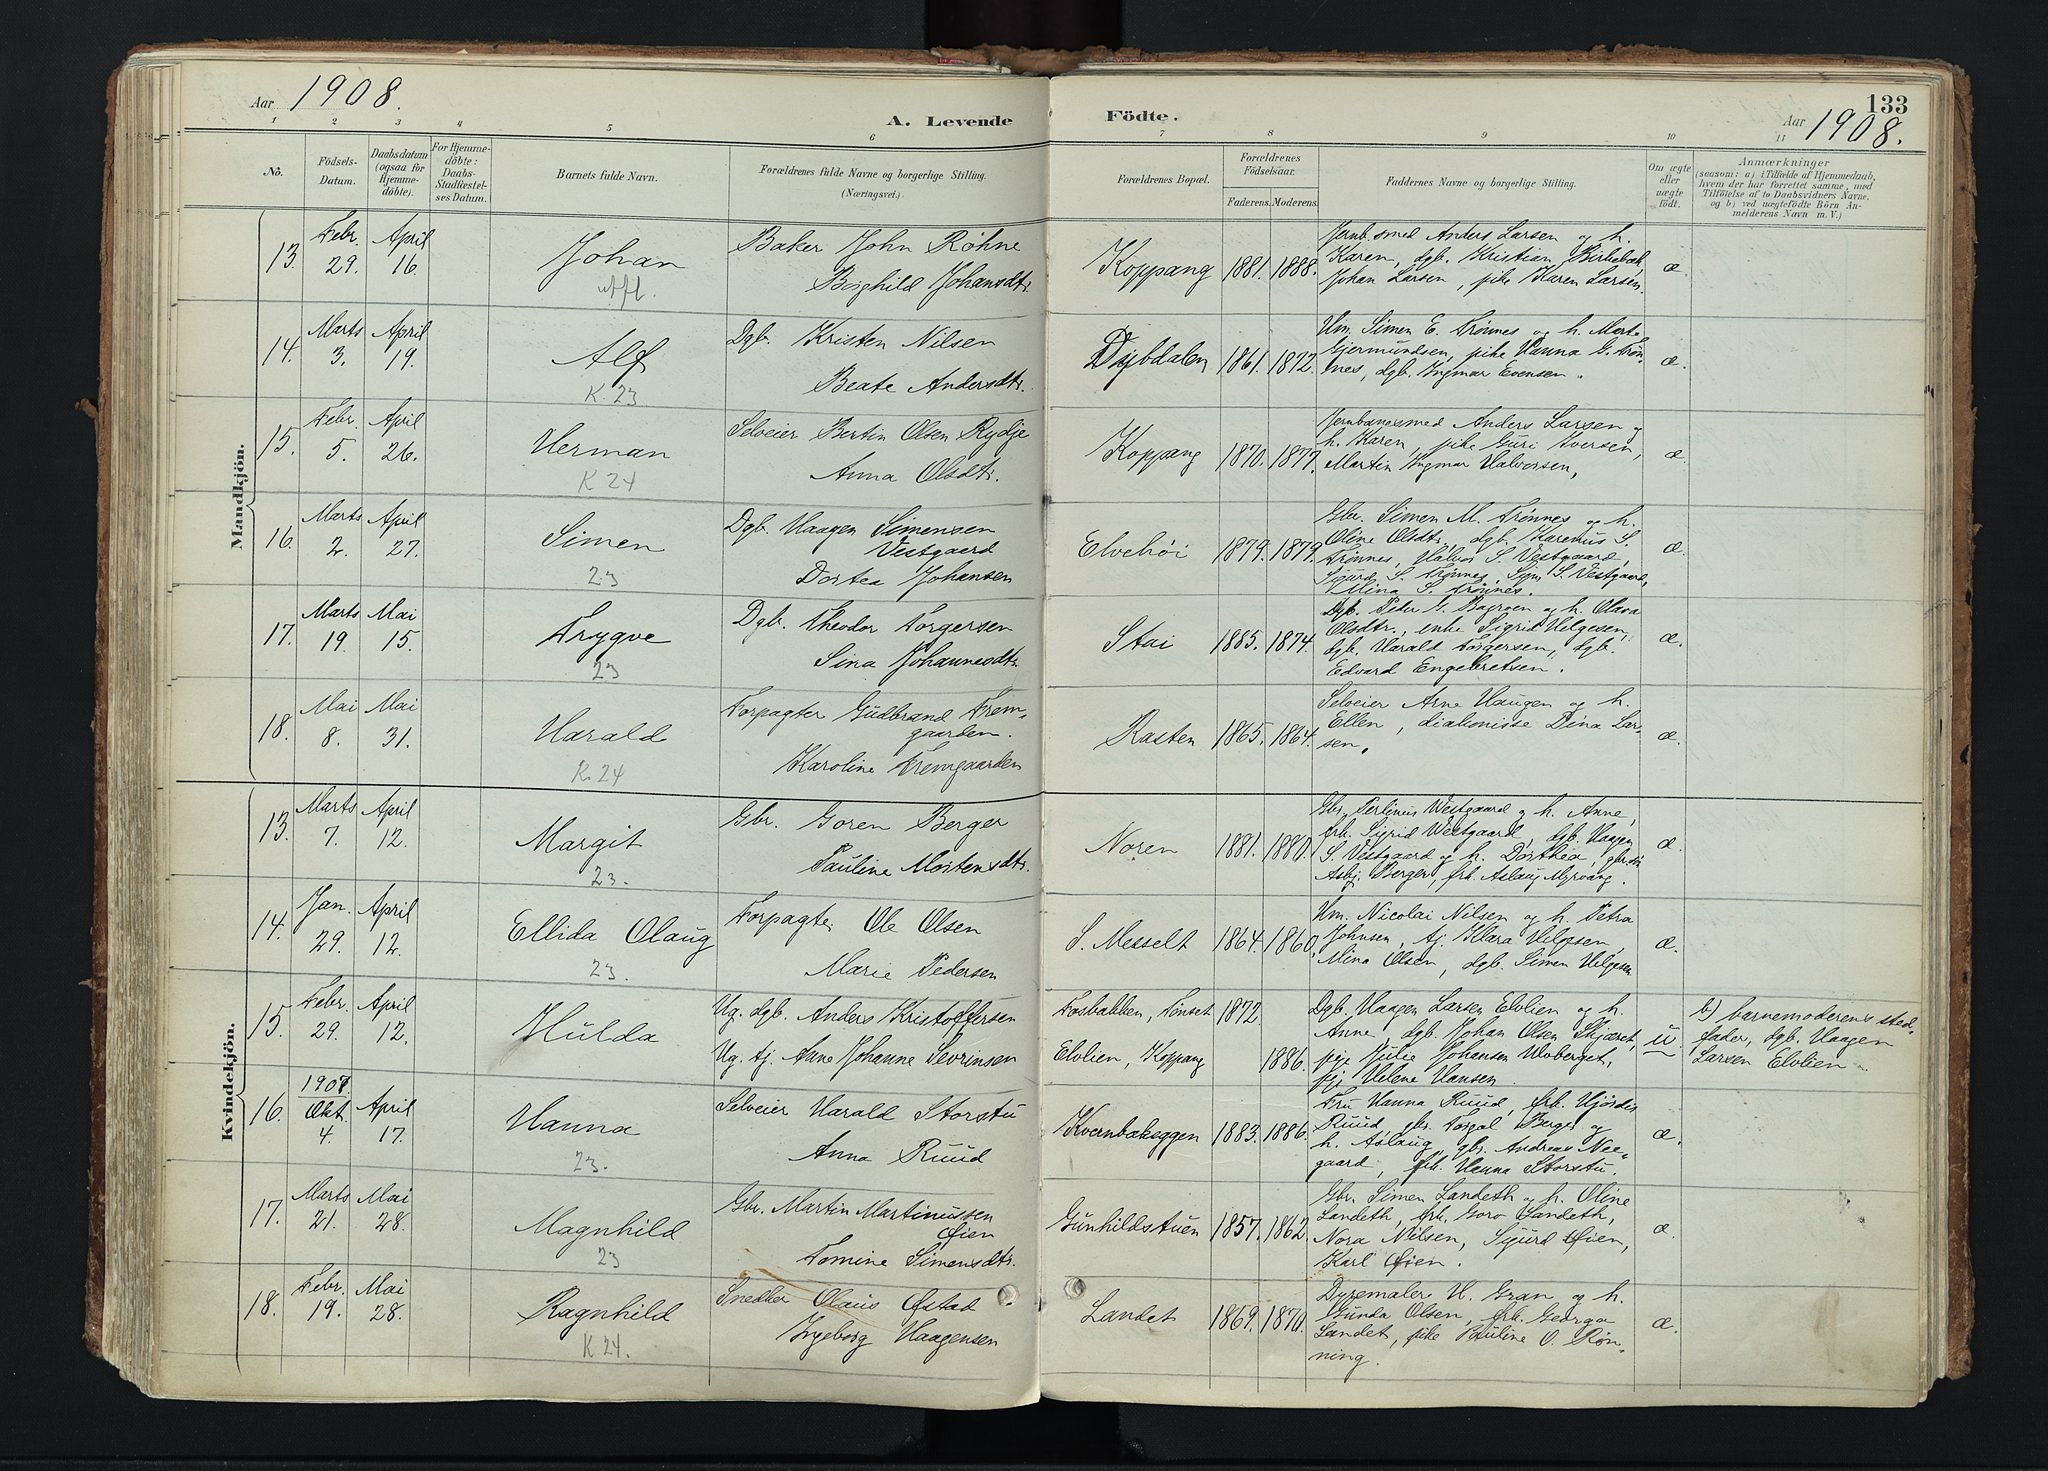 Aar 1908.
A. Levende
Fødte.
133
Aar 1908.
1 2 3 4 5 6 7 8 9 10 11
No.
Fødsels-
Datum.
Daabsdatum
(ogsaa før
Hjemme-
døbte).
For Hjemme-
døbte:
Daabs-
Stadfæstel-
ses Datum.
Barnets fulde Navn.
Forældrenes fulde Navne og borgerlige Stilling.
(Næringsvei.)
Forældrenes Bopæl.
Forældrenes
Fødselsaar.
Faderens. Moderens.
Faddernes Navne og borgerlige Stilling.
Om ægte
eller
uægte
født.
Anmærkninger
(saasom: a) i Tilfælde af Hjemmedaab,
hvem der har forrettet samme, med
Tilføielse af to Daabsvidners Navne,
og b) ved uægtefødte Børn An-
melderens Navn m. V.)
Mandkjøn.
13. Febr. 29. April 16. Johan
Baker John Röhne
Borghild Johansdtr.
Koppang 1881. 1888.
Jernb.smed Anders Larsen og h.
Karen, dgb. Kristian Birkebæk,
Johan Larsen, pike Karen Larsen.
æ.
14. Marts 3. April 19. Alf
K. 23
Dgb. Kristen Nilsen
Beate Andersdtr.
Dybdalen 1861. 1872.
Hm. Simen E. Trønnes og h. Marte
Gjermundsen, pike Hanna G. Trøn-
nes, dgb. Ingmar Evensen.
æ.
15. Febr. 5. April 26. Herman
K 24
Selveier Bertin Olsen Rydje
Anna Olsdtr.
Koppang 1870. 1877.
Jernbanesmed Anders Larsen og
h. Karen, pike Guri Iversen,
Martin Ingmar Halvorsen,
æ.
16. Marts 2. April 27. Simen
23
Dgb. Haagen Simensen
Vestgaard
Dortea Johansen
Elvehøi 1879. 1879.
Gbr. Simen M. Trønnes og h.
Oline Olsdtr., dgb. Karenus S.
Trønnes, Halvor S. Vestgaard,
Sigurd S. Trønnes, Sgm S. Vestgaard,
Mina S. Trønnes.
æ.
17. Marts 19. Mai 15. Trygve
23
Dgb. Theodor Torgersen
Sina Johannesdtr.
Stai 1885. 1874.
Dgb. Peder G. Bagroen og h. Olava
Olsdtr., enke Sigrid Helgesen,
dgb. Harald Torgersen, dgb.
Edvard Engebretsen.
æ.
18. Mai 8. Mai 31. Harald
K. 24
Forpagter Gudbrand Frem-
gaarden.
Karoline Fremgaarden
Rasten 1865. 1864.
Selveier Arne Haugen og h.
Ellen, diakonisse Dina Lar-
sen.
æ.
Kvindekjøn.
13. Marts 7. April 12. Margit
23.
Gbr. Goren Berger
Pauline Mortensdtr.
Noren 1881. 1880.
Gbr. Perlinus Westgaard og h. Anne,
frk. Sigrid Westgaard, dgb. Haagen
S. Vestgaard og h. Dorthea,
Asbj. Berger, frk. Aslaug Myrvang.
æ.
14. Jan. 29. April 12. Ellida Olaug
23.
Forpagter Ole Olsen
Marie Pedersen
S. Messelt 1864. 1860.
Hm. Nicolai Nilsen og h. Petra
Johnsen, tj. Klara Helgesen,
Mina Olsen, dgb. Simen Helgesen
æ.
15. Febr. 29. April 12. Hulda
Ug. dgb. Anders Kristoffersen
Ug. tj. Anne Johanne Sevrinsen
Fosbakken, Tönset 1872.
Elvlien, Koppang 1886.
Dgb. Haagen Larsen Elvlien og h.
Anne, dgb. Johan Olsen Skjæret,
pige Julie Johansen Ulvberget,
pige Helene Hansen.
u.
b) barnemoderens sted-
fader, dgb. Haagen
Larsen Elvlien
16. 1907 Okt. 4. April 17. Hanna
23.
Selveier Harald Storstu
Anna Ruud
Kvernbækeggen 1883. 1886.
Fru Hanna Ruud, frk. Hjördis
Ruud, gbr. Torgal Berger og
h. Aslaug, gbr. Andreas Nee-
gaard, frk. Hanna Storstu.
æ.
17. Marts 21. Mai 28. Magnhild
23
Gbr. Martin Martinussen
Øien
Tomine Simensdtr.
Gunhildstuen 1857. 1862.
Gbr. Simen Landeth og h. Oline
Landeth, frk. Goro Landeth,
Nora Nilsen, Sigurd Øien,
Karl Øien.
æ.
18. Febr. 19. Mai 28. Ragnhild
K 24.
Snedker Olaus Østad
Ingeborg Haagensen
Landet 1869. 1870.
Dyremaler H. Gran og h.
Gunda Olsen, frk. Georga
Landet, pike Pauline O. Røn-
ning.
æ.